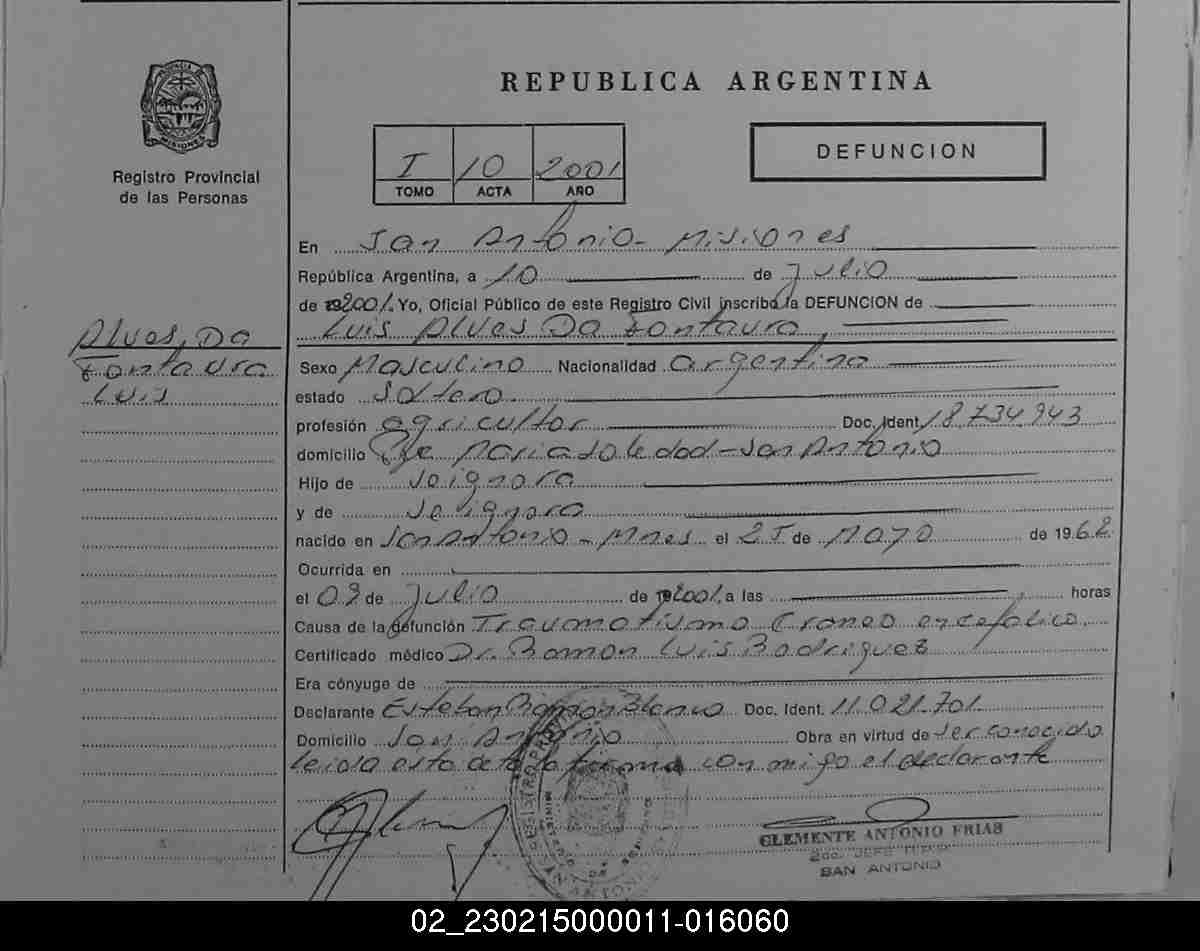 PROVINCIA DE
MISIONES
Registro Provincial
de las Personas
REPUBLICA ARGENTINA
I 10 2001
TOMO ACTA AÑO
DEFUNCION
En San Antonio - Misiones
República Argentina, a 10 de Julio
de 2001. Yo, Oficial Público de este Registro Civil inscribo la DEFUNCION de
Luis Alves Da Fontaura
Alves, Da
Fontaura
Luis
Sexo Masculino Nacionalidad argentina
estado Soltero
profesión agricultor Doc. Ident. 18.734.943
domicilio Pje Maria Soledad - San Antonio
Hijo de Se ignora
y de Se ignora
nacido en San Antonio - Mnes el 25 de Mayo de 1962
Ocurrida en
el 09 de Julio de 2001, a las horas
Causa de la defunción Traumatismo Craneo encefalico.
Certificado médico Dr. Ramon Luis Rodriguez
Era cónyuge de
Declarante Esteban Ramon Blanco Doc. Ident. 11.021.701
Domicilio San Antonio Obra en virtud de ser conocido
leida esta acta la firma conmigo el declarante
CLEMENTE ANTONIO FRIAS
SAN ANTONIO
02_230215000011-016060